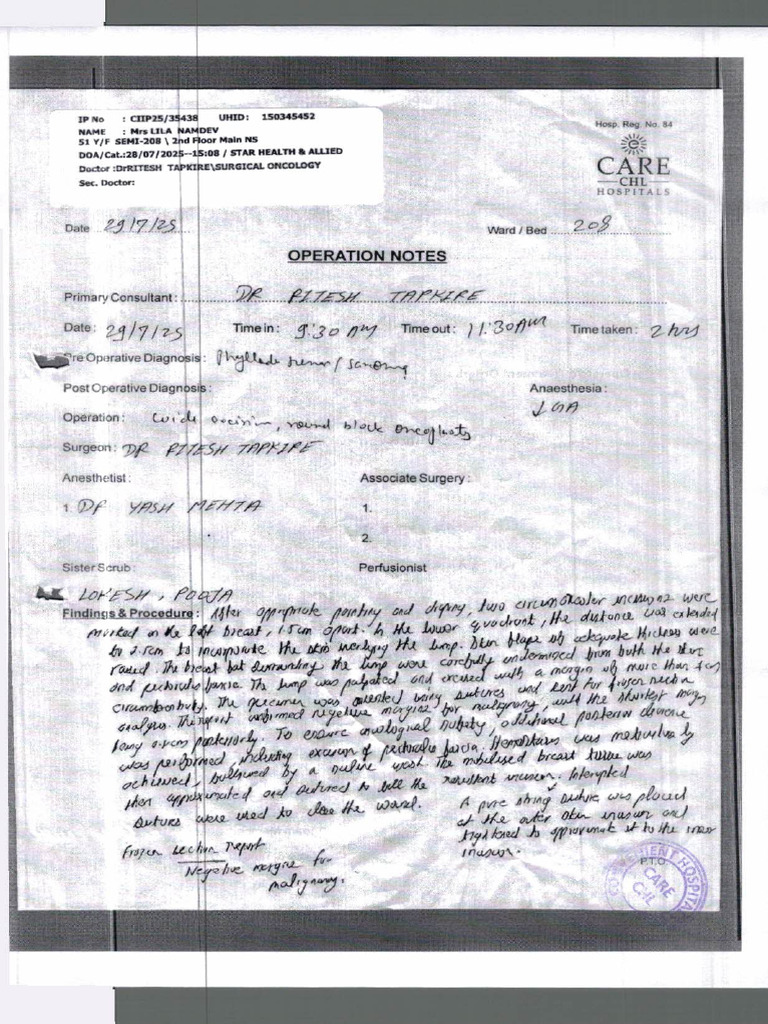 IP No : CIIP25/35438 UHID: 150345452
NAME : Mrs LILA NAMDEV
51 Y/F SEMI-208 \ 2nd Floor Main NS
DOA/Cat.:28/07/2025--15:08 / STAR HEALTH & ALLIED
Doctor :DrRITESH TAPKIRE\SURGICAL ONCOLOGY
Sec. Doctor:
Hosp. Reg. No. 84
CARE
CHL
HOSPITALS
Date 29/7/25 Ward / Bed 208
OPERATION NOTES
Primary Consultant : DR RITESH TAPKIRE
Date : 29/7/25 Time in : 9:30 AM Time out : 11:30AM Time taken : 2 hrs
Pre Operative Diagnosis : Phyllode
Post Operative Diagnosis : Anaesthesia :
GA
Operation : wide excision, round block
Surgeon : DR RITESH TAPKIRE
Anesthetist : Associate Surgery :
1. DR YASH MEHTA 1.
2.
Sister Scrub : Perfusionist
LOKESH, POOJA
Findings & Procedure : After appropriate painting and draping, two circumareolar incisions were
marked on the left breast, 1.5cm apart. In the lower quadrant, the distance was extended
to 2.5cm to incorporate the skin overlying the lump. Skin flaps of adequate thickness were
raised. The breast fat surrounding the lump were carefully undermined from both the skin
and pectoralis fascia. The lump was palpated and excised with a margin of more than
The specimen was oriented using sutures and sent for frozen section
analysis. The report confirmed negative margins for malignancy, with the shortest margin
being posteriorly. To ensure oncological safety, additional posterior
was performed, including excision of pectoralis fascia. Hemostasis was meticulously
achieved, followed by a saline wash. The mobilised breast tissue was
then approximated and sutured to fill the resultant Interrupted
sutures were used to close the wound. A purse string suture was placed
at the outer skin incision and
tightened to approximate it to the inner
incision.
Frozen section report
Negative margins for
malignancy.
P.T.O
CARE
CHL